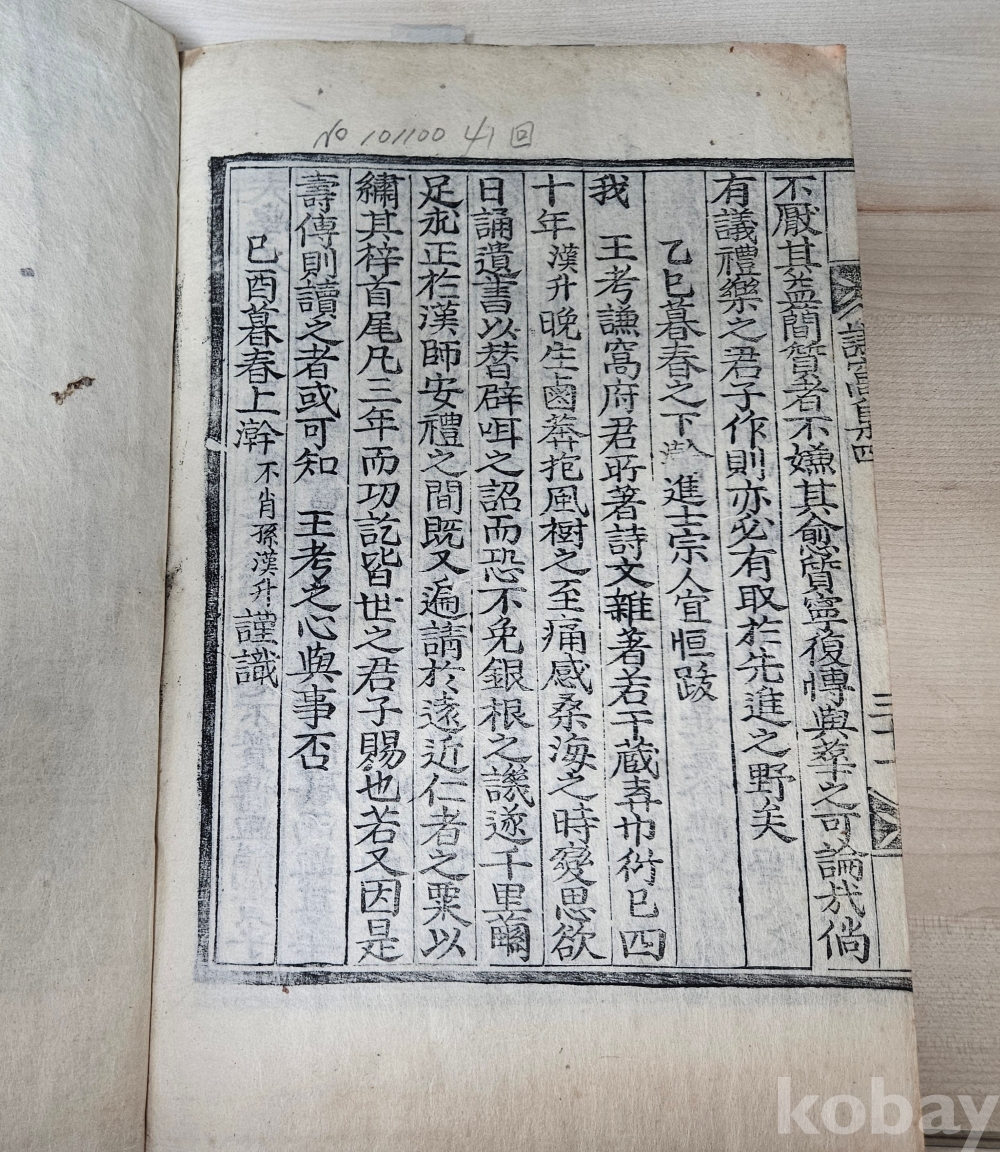 No 101100 41 回
謙窩集四
三十一
不厭其益簡質者不嫌其愈質寧復博與萃之可論哉倘
有議禮樂之君子作則亦必有取於先進之野矣
乙巳暮春之下澣進士宗人宜恒跋
我 王考謙窩府君所著詩文雜著若干蔵弆巾衍已四
十年漢升晩生鹵莽抱風樹之至痛感桑海之時變思欲
日誦遺書以替辟咡之詔而恐不免銀根之譏遂千里繭
足求正於漢師安禮之間既又遍請於遠近仁者之粟以
繡其梓首尾凡三年而功訖皆世之君子賜也若又因是
壽傳則讀之者或可知 王考之心與事否
己酉暮春上澣不肖孫漢升謹識
kobay